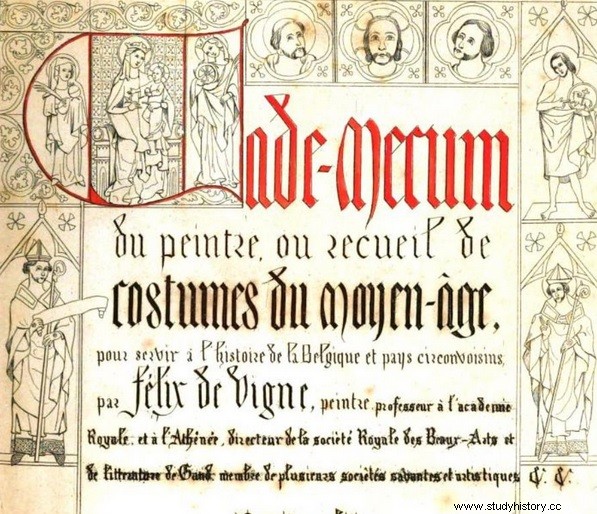 Vade-Mecum
du peintre, ou recueil de
costumes du moyen-âge,
pour servir à l'histoire de la Belgique et pays circonvoisins,
par Félix de Vigne, peintre, professeur à l'academie
Royale, et à l'Athénée, directeur de la société Royale des Beaux-Arts et
de littérature de Gand, membre de plusieurs sociétés savantes et artistiques &. &.
www.studyhistory.cc